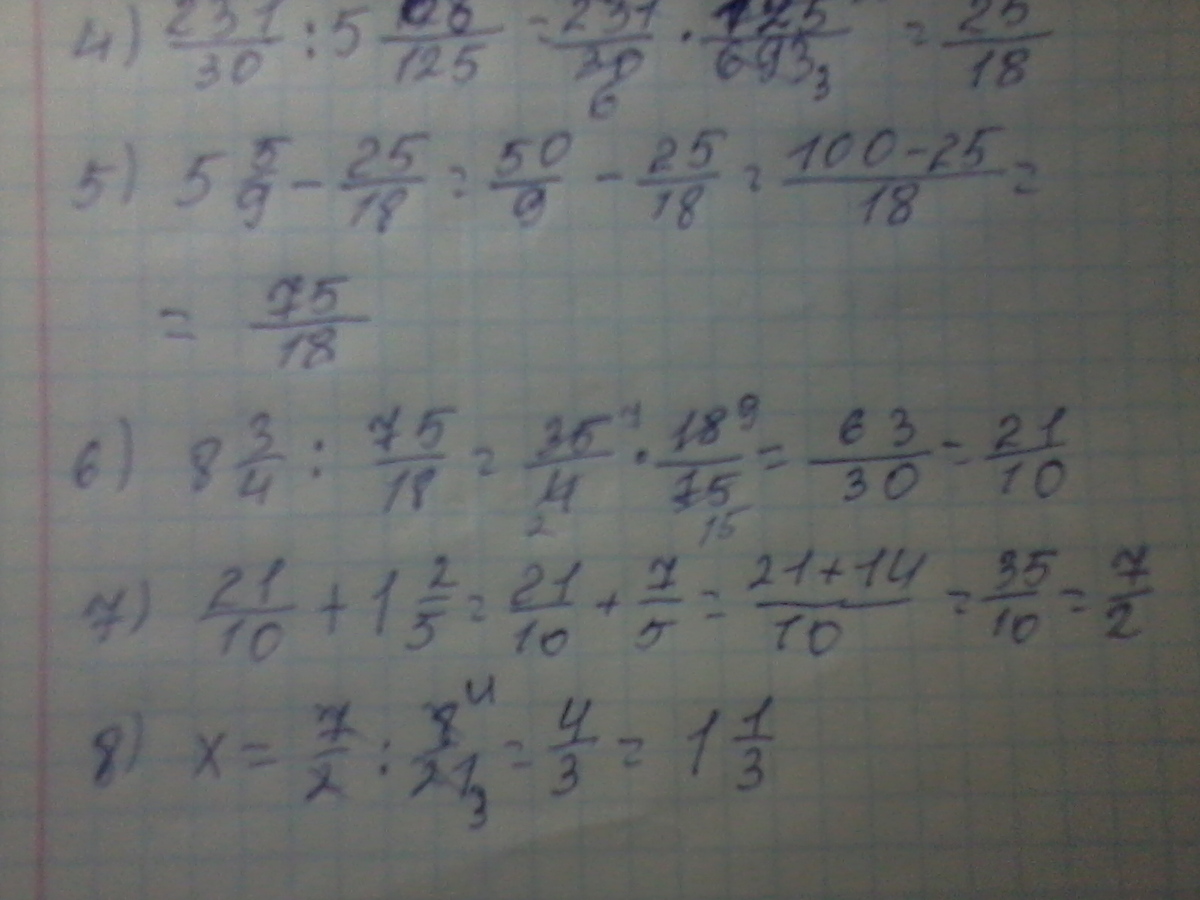 4) 231/30 : 5 68/125 = 231/30 6 · 125/693 3 = 25/18
5) 5 5/9 - 25/18 = 50/9 - 25/18 = 100-25/18 =
= 75/18
6) 8 3/4 : 75/18 = 35 7/4 2 · 18 9/75 15 = 63/30 = 21/10
7) 21/10 + 1 2/5 = 21/10 + 7/5 = 21+14/10 = 35/10 = 7/2
8) x = 7/2 : 8 4/21 3 = 4/3 = 1 1/3